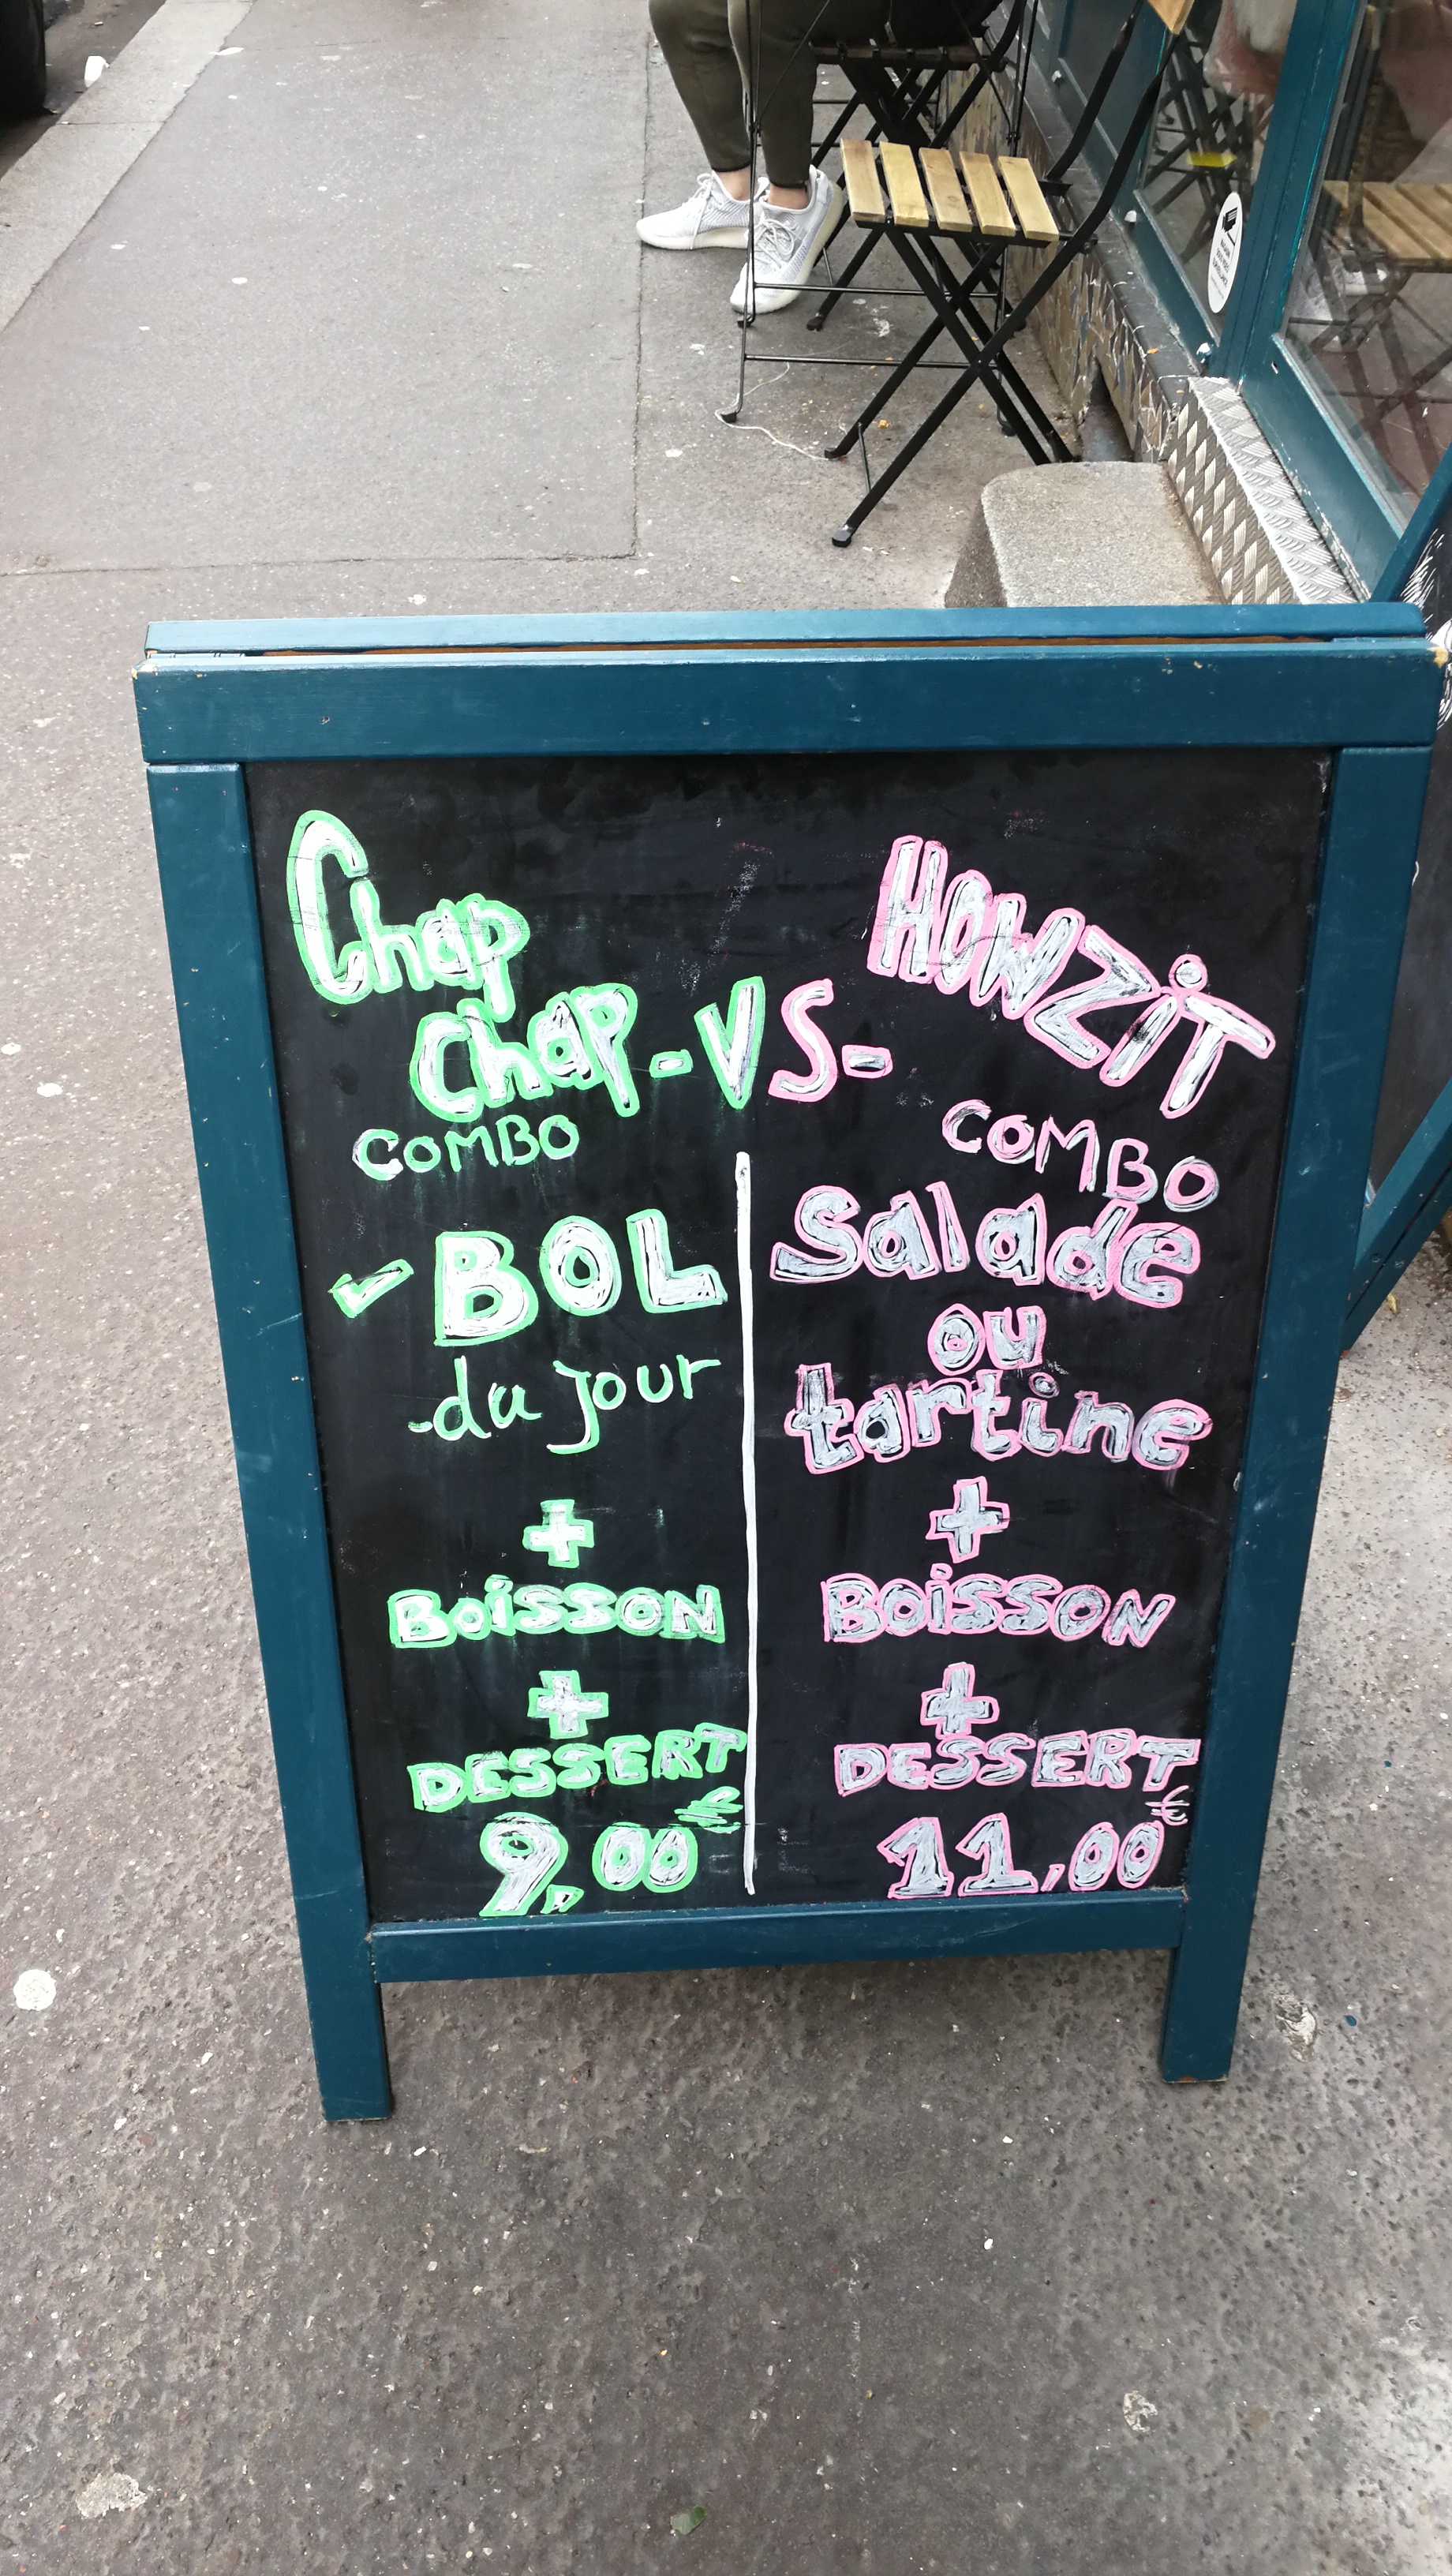 Chap
Chap - VS -
COMBO
BOL
du jour
+
BOISSON
+
DESSERT
9,00€
HOWZIT
COMBO
Salade
ou
tartine
+
BOISSON
+
DESSERT
11,00€